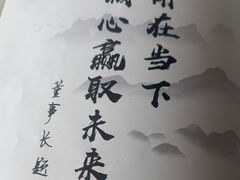 在当下
心赢取未来
董事长题